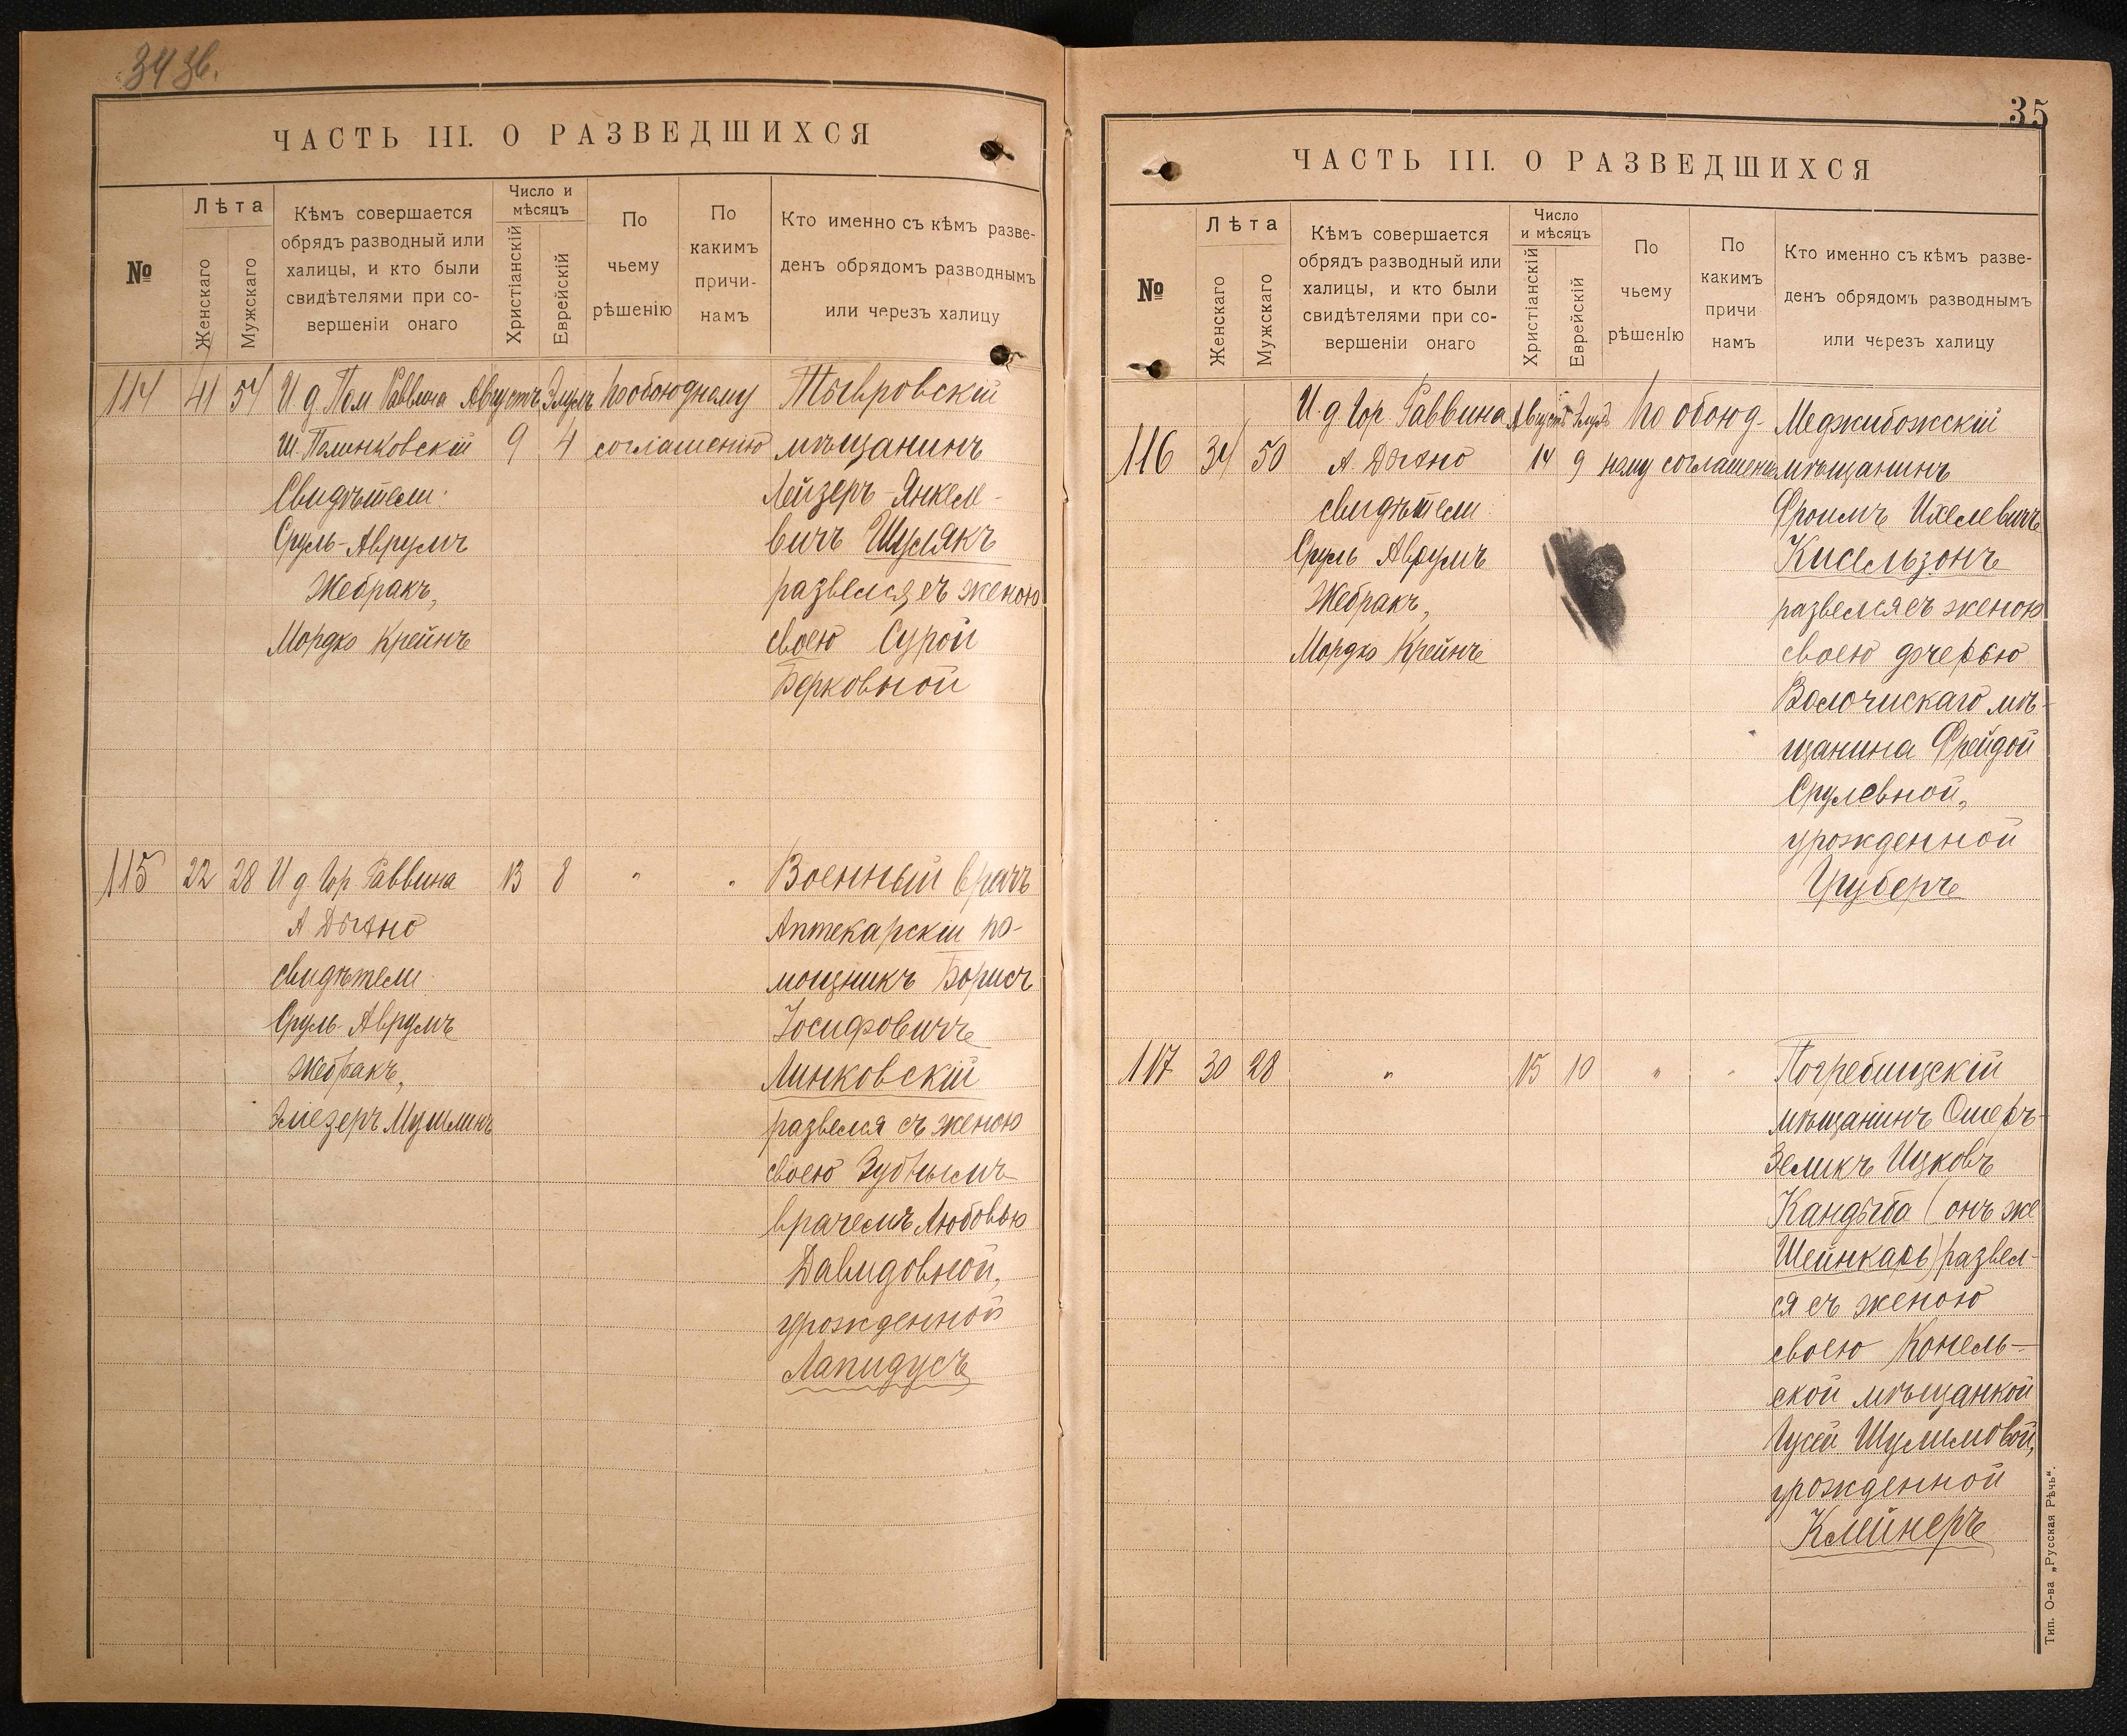 34 зв.
ЧАСТЬ III. О РАЗВЕДШИХСЯ
№
Лѣта
Женскаго
Мужскаго
Кѣмъ совершается
обрядъ разводный или
халицы, и кто были
свидѣтелями при со-
вершеніи онаго
Число и
мѣсяцъ
Христіанскій
Еврейскій
По
чьему
рѣшенію
По
какимъ
причи-
намъ
Кто именно съ кѣмъ разве-
денъ обрядомъ разводнымъ
или черезъ халицу
114 41 54 И д Пом Раввина Августъ Элулъ По обоюдному Тывровскій
Ш. Полинковскій 9 4 соглашенію мѣщанинъ
Свидѣтели: Лейзеръ-Янкеле-
Сруль-Аврумъ вичъ Шулякъ
Жебракъ, развелся съ женою
Мордко Крейнъ своею Сурой
Берковной
115 22 28 И д Гор. Раввина 13 8 " " Военный врачъ
А. Дыхно Аптекарскій по-
свидѣтели мощникъ Борисъ
Сруль-Аврумъ Іосифовичъ
Жебракъ, Линковскій
Эліезеръ Мушлинъ развелся съ женою
своею Зубнымъ
врачемъ Любовью
Давидовной,
урожденной
Лапидусъ
35
ЧАСТЬ III. О РАЗВЕДШИХСЯ
№
Лѣта
Женскаго
Мужскаго
Кѣмъ совершается
обрядъ разводный или
халицы, и кто были
свидѣтелями при со-
вершеніи онаго
Число
и мѣсяцъ
Христіанскій
Еврейскій
По
чьему
рѣшенію
По
какимъ
причи
намъ
Кто именно съ кѣмъ разве-
денъ обрядомъ разводнымъ
или черезъ халицу
И. д Гор. Раввина Августъ Элулъ По обоюд- Меджибожскій
116 34 50 А. Дыхно 14 9 ному соглашенію мѣщанинъ
свидѣтели Фроимъ Ихелевичъ
Сруль Аврумъ Кисельзонъ
Жебракъ, развелся съ женою
Мордко Крейнъ своею дочерью
Волочискаго мѣ-
щанина Фрейдой
Срулевной,
урожденной
Груберъ
117 30 28 " 15 10 " " Погребищскій
мѣщанинъ Ошеръ-
Зеликъ Ицковъ
Кандыба (онъ же
Шейнкарь) развел-
ся съ женою
своею Конель-
ской мѣщанкой
Гусей Шулимовой,
урожденной
Клейнеръ
Тип. О-ва „Русская Рѣчь".